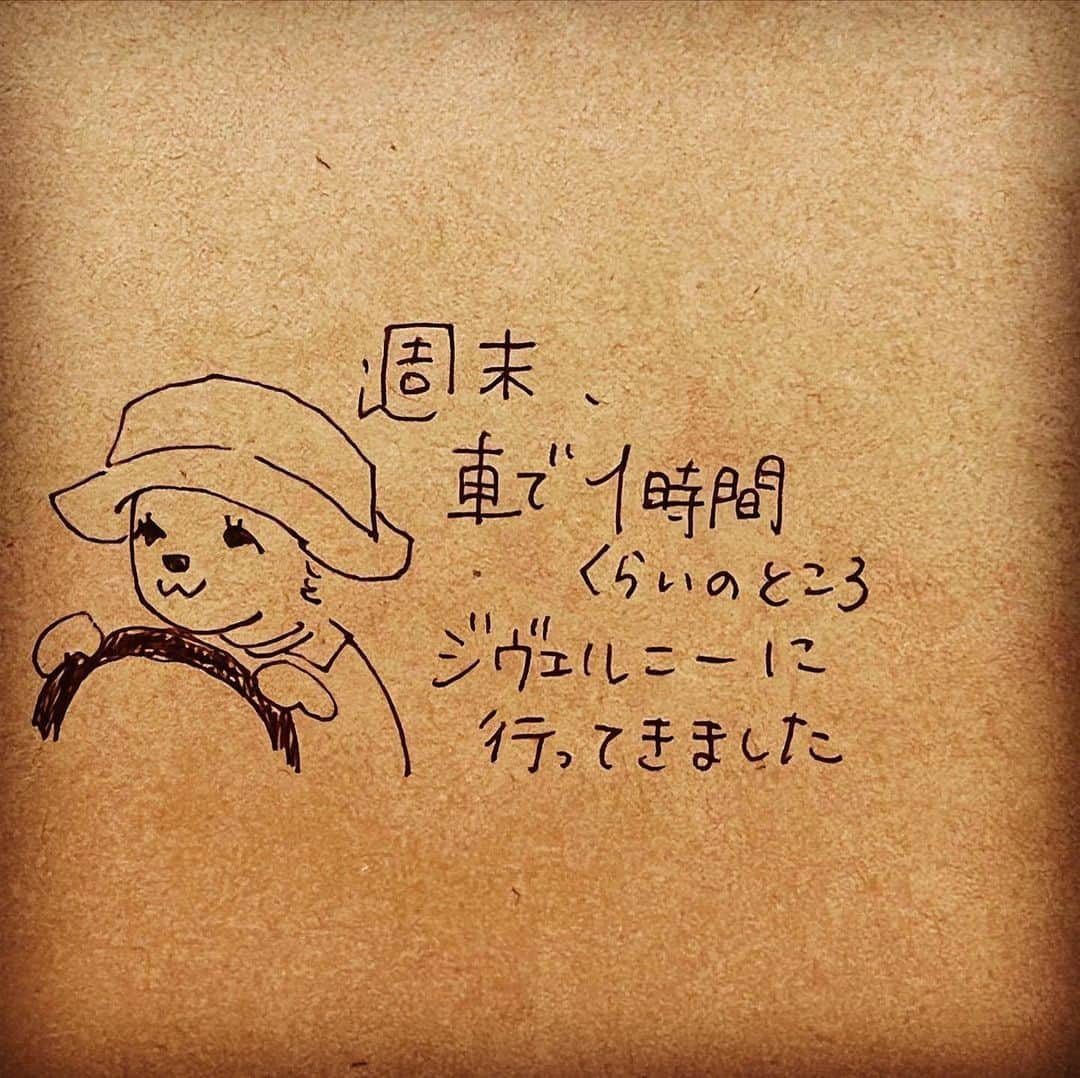 週末、
車で1時間
くらいのところ
ジヴェルニーに
行ってきました